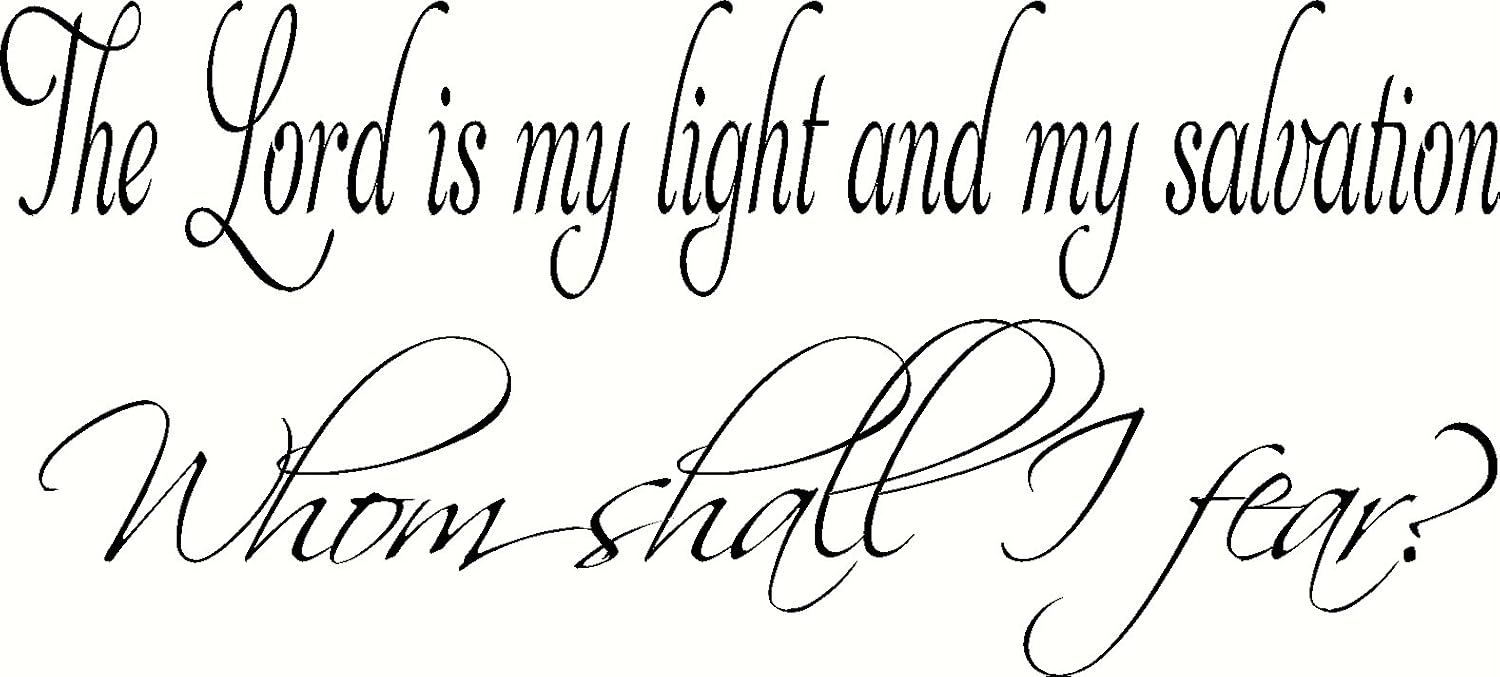 The Lord is my light and my salvation
Whom shall I fear?